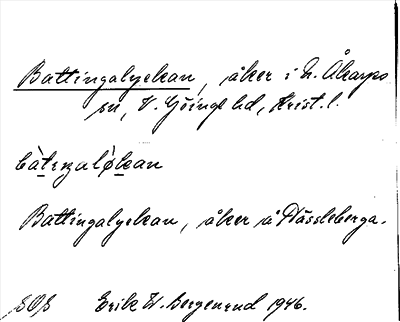 Battingalyckan, åker i N. Åkarps
sn, V. Göinge hd, Krist. l.
bàtɪŋaløkan
Battingalyckan, åker å Hässleberga.
SOS Erik W. Bergenrud 1946.